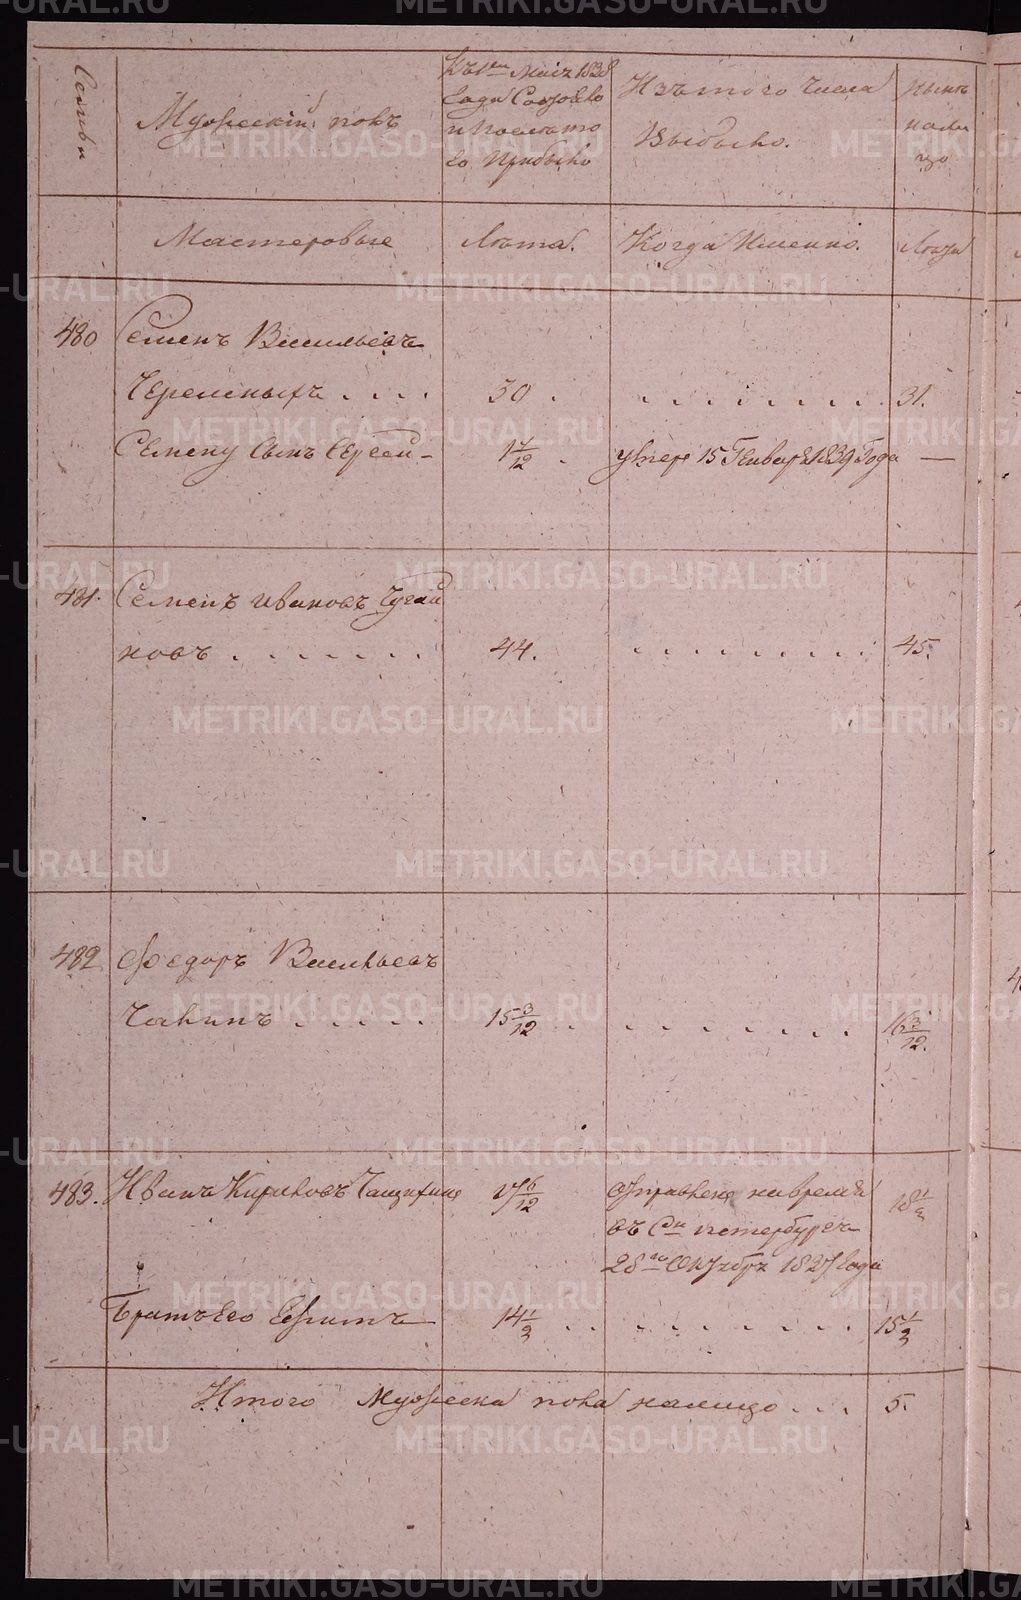 Семьи
Мужескiй полъ
Къ 1му Маiя 1838
Года Состояло
и после то
го Прибыло
Изъ того Числа
Выбыло.
Нынъ
нали
цо
Мастеровые
Лъта.
Когда Именно.
Лъта
480 Семенъ Васильевъ
Черемныхъ . . . . 30 . . . . . . . . . . 31.
Семену Сынъ Сергей - 1 7/12 . умер 15 Генваря 1839 Года —
481. Семенъ Ивановъ Чугай
новъ . . . . . . . 44. . . . . . . . . . 45.
482 Федоръ Васильевъ
Чакинъ . . . . . 15 3/12 . . . . . . . . . 16 3/12.
483. Иванъ Кириловъ Чащихинъ 17 6/12 Отправленъ на время
въ Сн Петербургъ
28го Октября 1837 Года
18 1/2
Братъ Его Ефимъ 14 1/2 . . . . . . . . . 15 1/2
Итого Мужеска пола налицо . . . 5.
METRIKI.GASO-URAL.RU